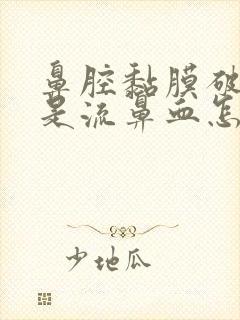 鼻腔黏膜破
是流鼻血怎
少地瓜